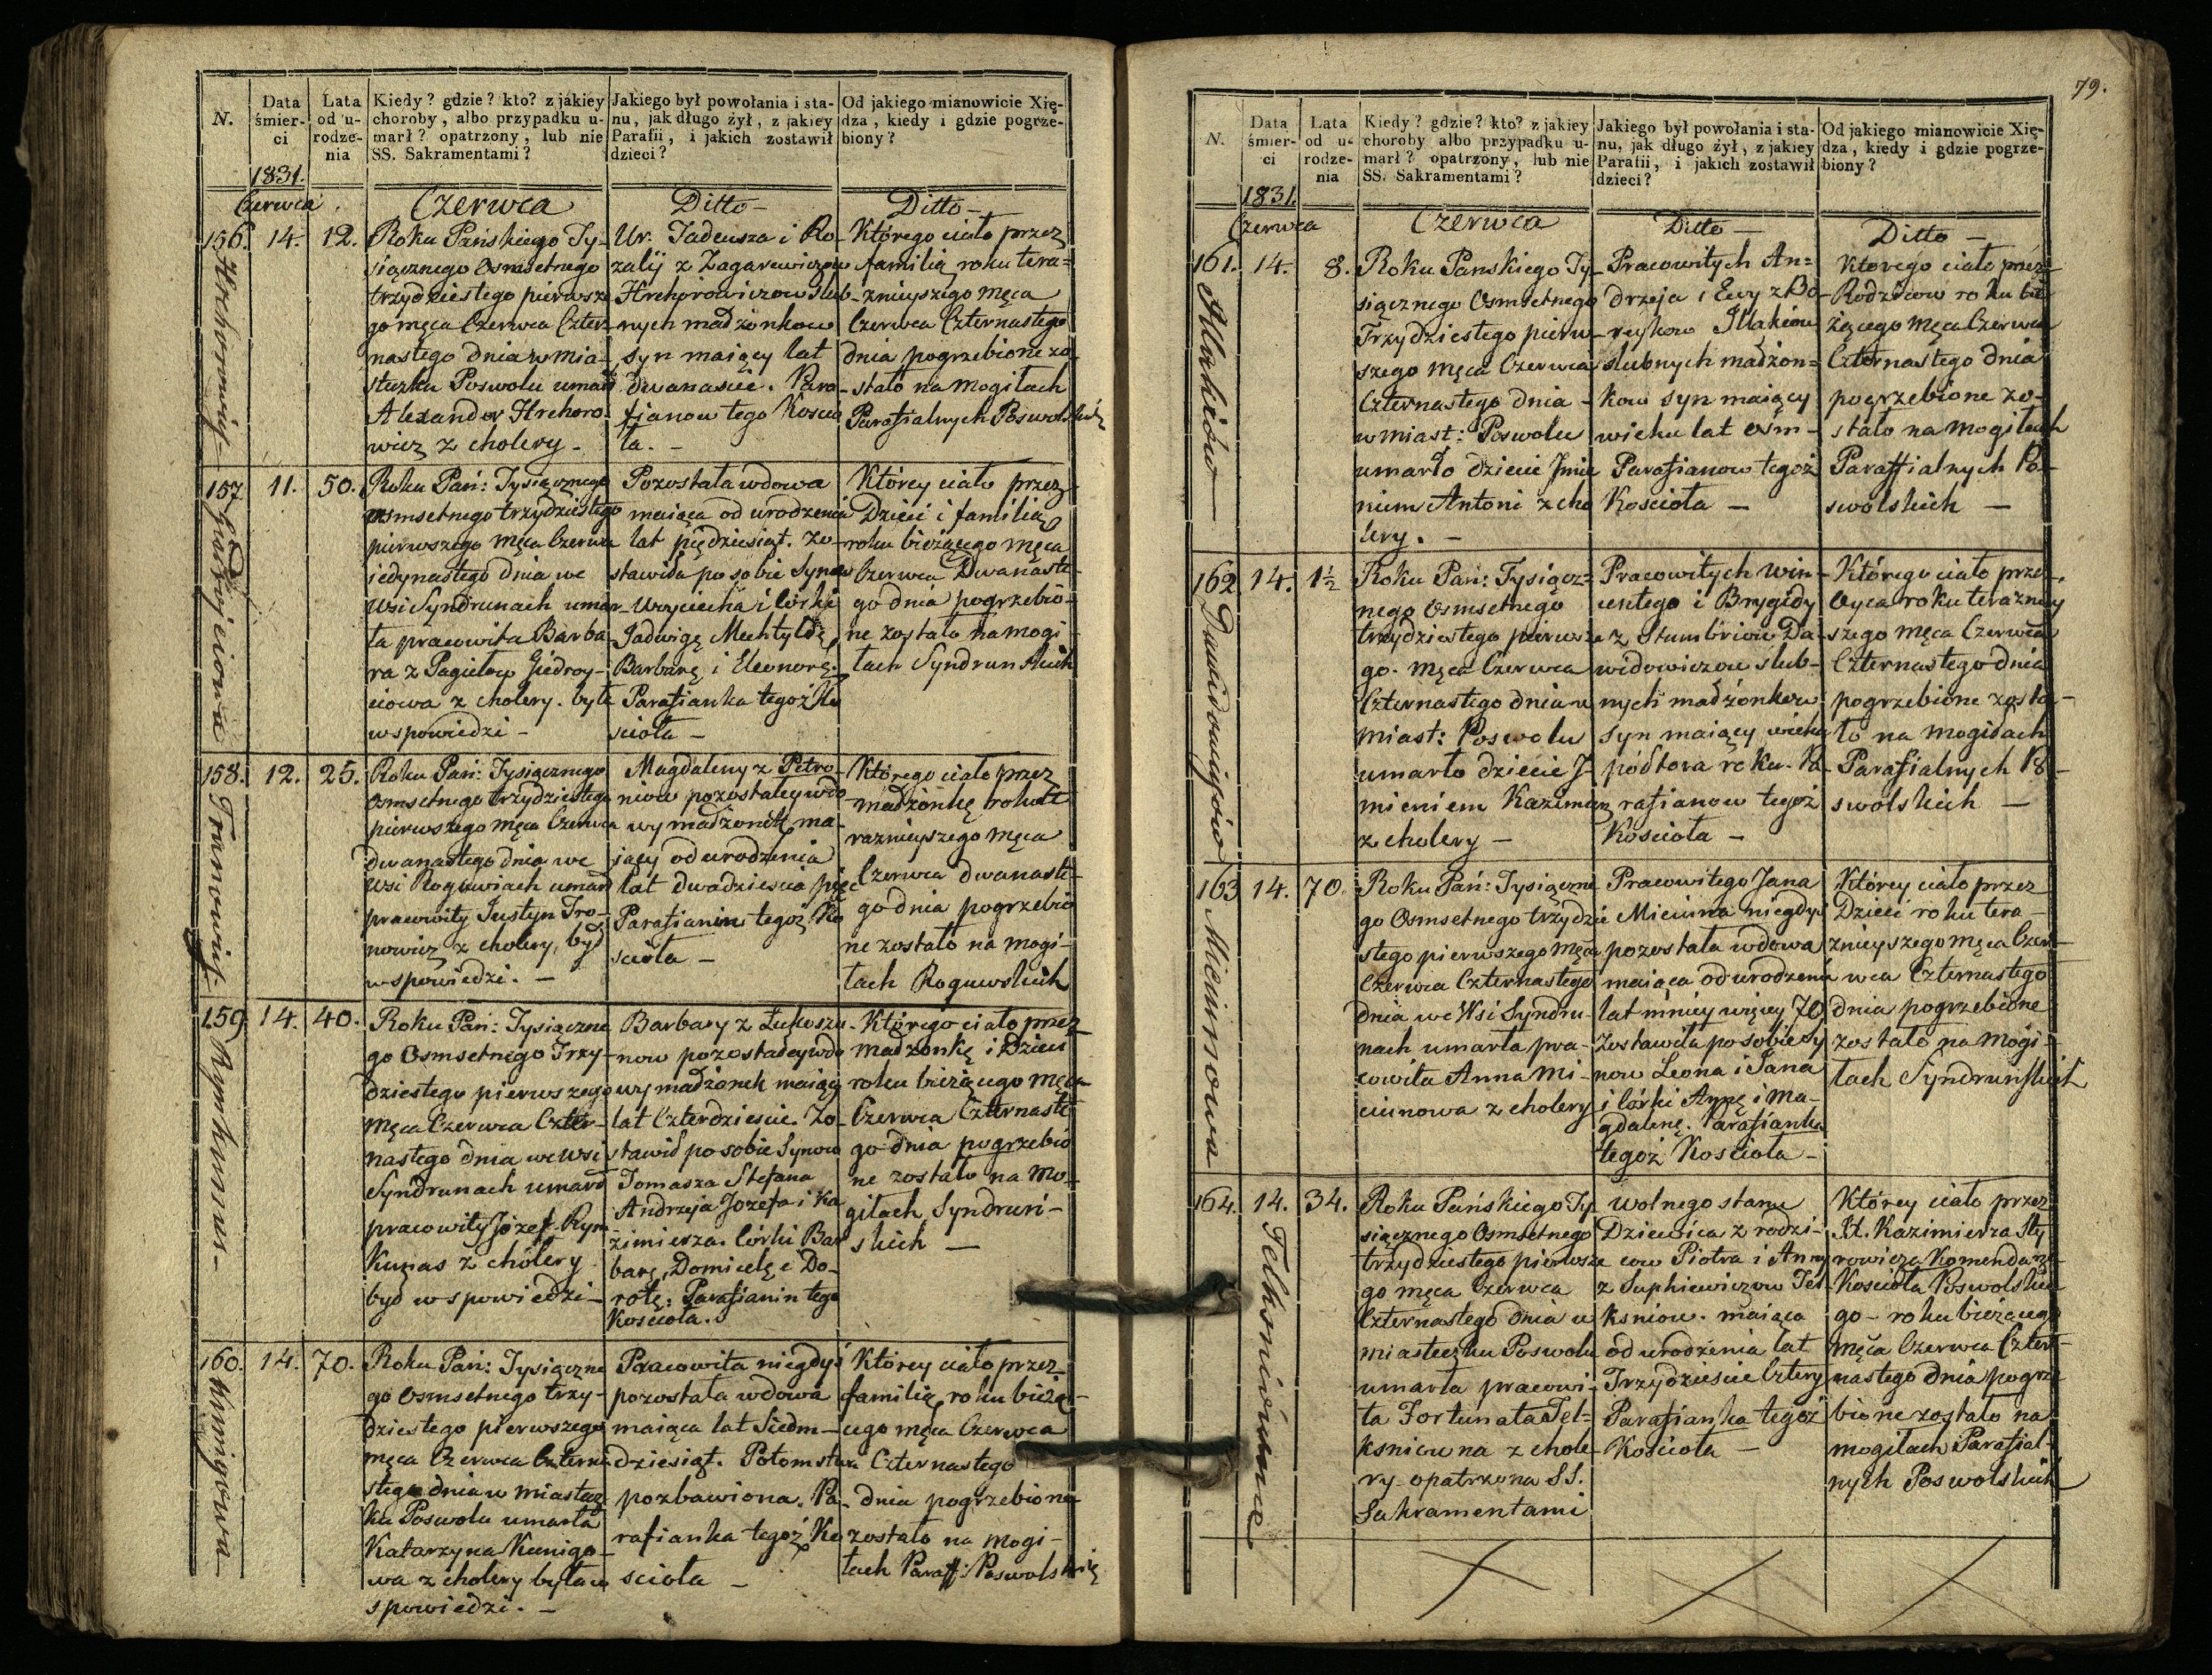 N.
Data
śmier-
ci
1831.
Lata
od u-
rodze-
nia
Kiedy? gdzie? kto? z jakiey
choroby, albo przypadku u-
marł? opatrzony, lub nie
SS. Sakramentami?
Jakiego był powołania i sta-
nu, jak długo żył, z jakiey
Parafii, i jakich zostawił
dzieci?
Od jakiego mianowicie Xię-
dza, kiedy i gdzie pogrze-
biony?
Czerwca
Czerwca
Ditto-
Ditto-
156.
14.
12.
Hrehorowicz-
Roku Pańskiego Ty-
siącznego Osmsetnego
trzydziestego pierwsze
go męca Czerwca Czter-
nastego dnia w mia-
steczku Poswolu umarł
Alexander Hrehoro-
wicz z cholery-
Ur. Tadeusza i Ro-
zalij z Zagarewiczow
Hrehorowiczow ślub-
nych małżonkow
syn maiący lat
dwanaście. Para-
fianow tego Koscio
ła.-
Którego ciało przez
familią roku tera=
znieyszego męca
Czerwca Czternastego
dnia pogrzebione zo-
stało na mogiłach
Parafialnych Poswolskich
157
11.
50.
Giedroyciowa
Roku Pań: Tysiącznego
osmsetnego trzydziestego
pierwszego męca Czerwca
jedynastego dnia we
Wsi Syndrunach umar-
ła pracowita Barba-
ra z Pagiełow Giedroy-
ciowa z cholery. była
w spowiedzi-
Pozostała wdowa
maiąca od urodzenia
lat piędziesiąt. Zo-
stawiła po sobie Synow
Woyciecha i Córki
Jadwigę Mechtyldę
Barbarę i Eleonorę.
Parafianka tegoż Ko
ścioła-
Którey ciało przez
Dzieci i familią
roku bieżącego męca
Czerwca Dwanaste-
go dnia pogrzebio-
ne zostało na mogi-
łach Syndrunskich
158.
12.
25.
Tranowicz-
Roku Pań: Tysiącznego
osmsetnego trzydziestego
pierwszego męca Czerwca
dwanastego dnia we
Wsi Roguwiach umarł
pracowity Justyn Tro-
nowicz z cholery, był
w spowiedzi.-
Magdaleny z Petro-
niow pozostałey wdo
wy małżonek ma-
jący od urodzenia
lat dwadzieścia pięc
Parafianin tegoż Ko
ścioła-
Którego ciało przez
małżonkę roku te
raznieyszego męca
Czerwca dwanaste-
go dnia pogrzebio
ne zostało na mogi-
łach Roguwskich
159
14.
40.
Rymkunas-
Roku Pań: Tysiączne
go Osmsetnego Trzy-
dziestego pierwszego
męca Czerwca Czter-
nastego dnia we Wsi
Syndrunach umarł
pracowity Józef Rym
Kunas z cholery
był w spowiedzi-
Barbary z Łukoszu-
now pozostałey wdo
wy małżonek maiący
lat Czterdzieście. Zo-
stawił po sobie Synow
Tomasza Stefana
Andrzeja Jozefa i Ka
zimierza. Córki Bar
barę, Domicelę i Do-
rotę. Parafianin tego
Koscioła.
Którego ciało przez
małżonkę i Dzieci
roku bieżącego męca
Czerwca Czternaste
go dnia pogrzebio
ne zostało na mo-
giłach Syndruń-
skich-
160.
14.
70.
Kunigowa-
Roku Pań: Tysiączne
go Osmsetnego trzy-
dziestego pierwszego
męca Czerwca Czterna-
stego dnia w miastecz
ku Poswolu umarła
Katarzyna Kunigo-
wa z cholery była w
spowiedzi.-
Pracowita niegdyś
pozostała wdowa
maiąca lat Siedm-
dziesiąt. Potomstwa
pozbawiona. Pa-
rafianka tegoż Ko
ścioła-
Którey ciało przez
familią roku bieżą-
cego męca Czerwca
Czternastego
dnia pogrzebione
zostało na mogi-
łach Paraff: Poswolskich
79.
N.
Data
śmier-
ci
1831.
Lata
od u-
rodze-
nia
Kiedy? gdzie? kto? z jakiey
choroby albo przypadku u-
marł? opatrzony, lub nie
SS. Sakramentami?
Jakiego był powołania i sta-
nu, jak długo żył, z jakiey
Parafii, i jakich zostawił
dzieci?
Od jakiego mianowicie Xię-
dza, kiedy i gdzie pogrze-
biony?
Czerwca
Czerwca
Ditto-
Ditto-
161.
14.
8.
Roku Panskiego Ty-
siącznego Osmsetnego
Trzydziestego pierw-
szego męca Czerwca
Czternastego dnia-
w miast: Poswolu
umarło dziecie Jmie
niem Antoni z cho
lery.-
Pracowitych An=
drzeja i Ewy z Bo-
slubnych małżon=
kow syn maiący
wieku lat ośm-
Parafianow tegoż
Kościoła-
Ktorego ciało przez
Rodzicow roku bie
żącego męca Czerwca
Czternastego dnia
pogrzebione zo-
stało na mogiłach
Paraffialnych Po-
swolskich-
162
14.
1½
Dawidowiczow
Roku Pań: Tysiącz=
nego osmsetnego
trzydziestego pierwsze
go. męca Czerwca
Czternastego dnia w
miast: Poswolu
umarło dziecie J-
mieniem Kazimierz
z cholery-
Pracowitych Win-
centego i Brygidy
z Stumbriow Da-
widowiczow slub-
nych małżonkow
syn maiący wieku
półtora roku. Pa-
rafianow tegoż
Kościoła-
Którego ciało przez
Oyca roku teraznie
szego męca Czerwca
Czternastego dnia
pogrzebione zosta-
ło na mogiłach
Parafialnych Po-
swolskich-
163
14.
70.
Mieciunowa
Roku Pań: Tysiączne
go Osmsetnego trzydzie
stego pierwszego męca
Czerwca Czternastego
dnia we Wsi Syndru-
nach umarła pra-
cowita Anna Mi-
ciunowa z cholery
Pracowitego Jana
Mieciuna niegdyś
pozostała wdowa
maiąca od urodzenia
lat mniey więcey 70
Zostawiła po sobie Sy
now Leona i Jana
i Córki Annę i Ma-
gdalenę. Parafianka
tegoż Kościoła-
Którey ciało przez
Dzieci roku tera-
znieyszego męca Czer-
wca Czternastego
dnia pogrzebione
zostało na mogi-
łach Syndruńskich
164.
14.
34.
Telksniówna
Roku Pańskiego Ty
siącznego Osmsetnego
trzydziestego pierwsze
go męca Czerwca
Czternastego dnia w
miasteczku Poswolu
umarła pracowi-
ta Fortunata Tel-
ksniowna z chole-
ry opatrzona SS.
Sakramentami
wolnego stanu
Dziewica z rodzi-
cow Piotra i Anny
z Supkiewiczow Tel-
ksniow. maiąca
od urodzenia lat
Trzydzieście Cztery
Parafianka tegoż
Kościoła-
Którey ciało przez
Komendarza
Kościoła Poswolskie
go- roku bieżącego
męca Czerwca Czter-
nastego dnia pogrze
bione zostało na
mogiłach Parafial-
nych Poswolskich